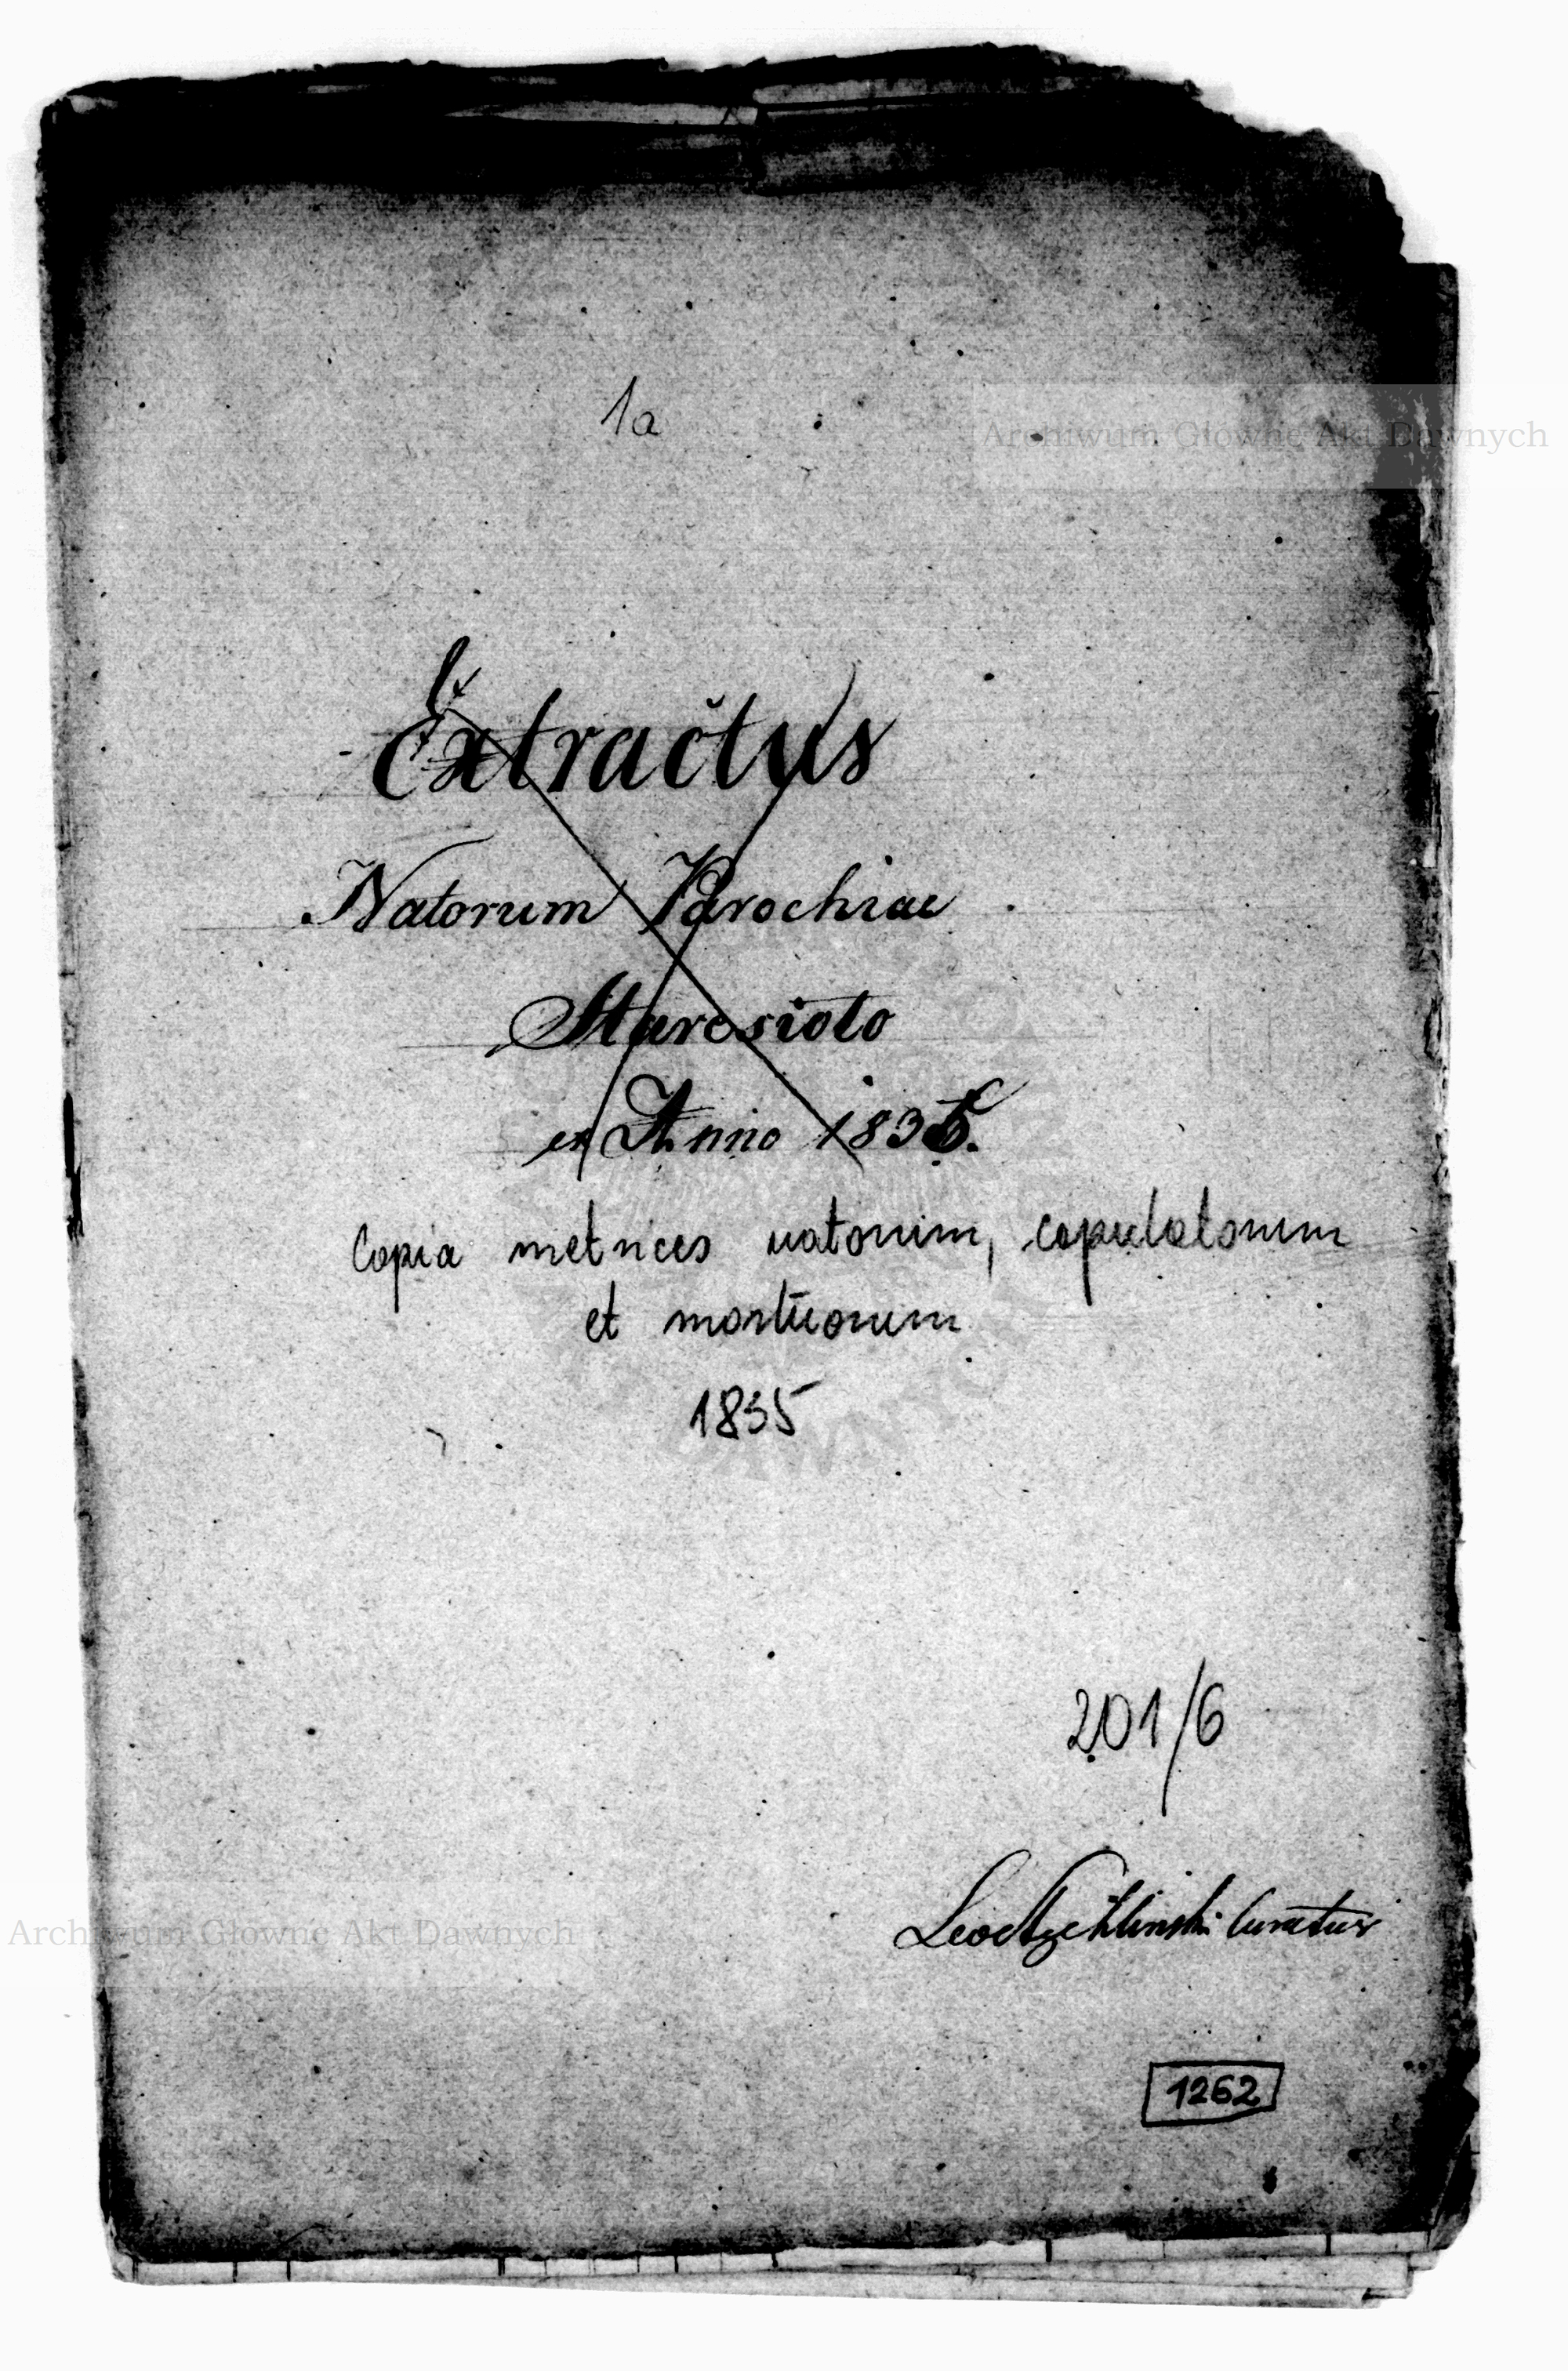 1a
Archiwum Głowne Akt Dawnych
Extractus
Natorum Parochiae
Staresioło
ex Anno 1835.
Copia metrices natorum, copulatorum
et mortuorum
1835
201/6
Leo curatus
Archiwum Głowne Akt Dawnych
1262